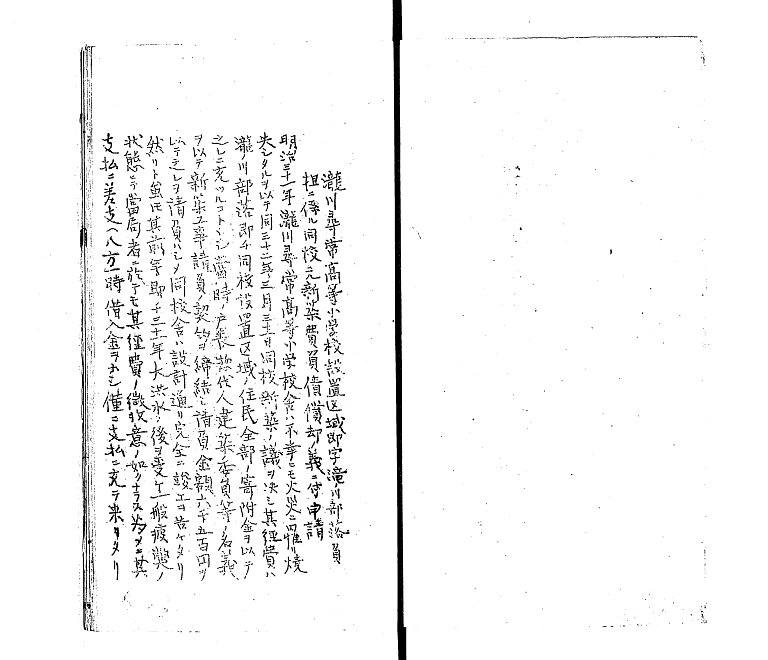 瀧川尋常高等小学校設置区域即字滝ノ川部落負
担ニ係ル同校元新築費負債償却ノ義ニ付申請
明治三十一年瀧川尋常高等小学校舎ハ不幸ニモ火災ニ罹リ焼
失シタルヲ以テ同三十二年三月三十五日同校新築ノ議ヲ決シ其経費ハ
瀧ノ川部落即チ同校設置区域ノ住民全部ノ寄附金ヲ以テ
之レニ充ツルコトヽシ當時ノ戸長総代人建築委員等ノ名義
ヲ以テ新築工事請負ノ契約ヲ締結シ請負金額六千五百円ヲ
以テ之レヲ請負ハシメ同校舎ハ設計通リ完全ニ竣工ヲ告ケタリ
然リト虽モ其前年即チ三十一年大洪水ノ後ヲ受ケ一般疲弊ノ
状態ニテ當局者ニ於テモ其経費ノ徴収意ノ如クナラス為メニ其
支払ニ差支ヘ八方一時借入金ヲナシ僅ニ支払ニ充テ来リタリ